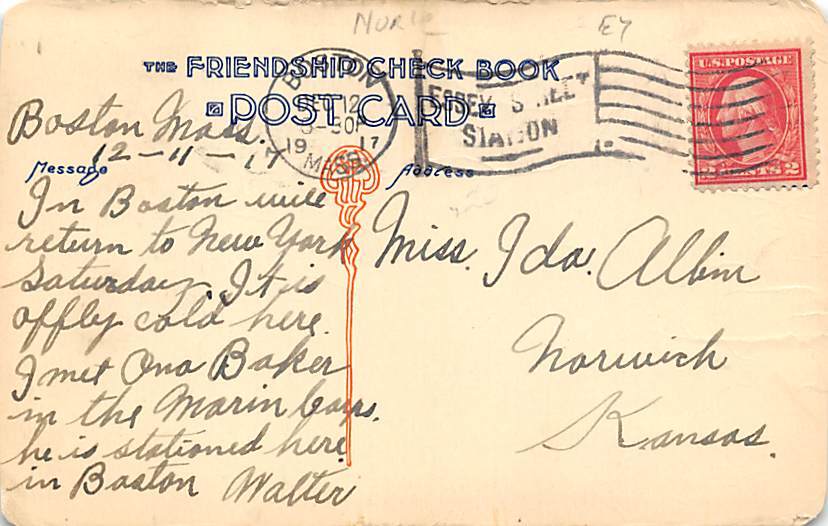 NOR EY
THE FRIENDSHIP CHECK BOOK
POST CARD
BOSTON
DEC 12
3-30P
1917
MASS.
ESSEX STREET
STATION
U.S. POSTAGE
2 CENTS 2
Boston Mass.
12-11-17
Message
Address
In Boston will
return to New York
Saturday. It is
offly cold here.
I met Ona Baker
in the Marin Corps.
he is stationed here
in Boston Walter
Miss. Ida. Albin
Norwich
Kansas.